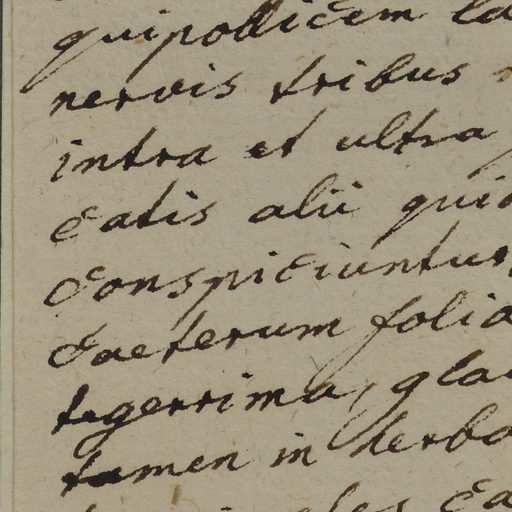 qui pollicem la
nervis tribus
intra et ultra
catis alii qui
conspiciuntur,
caeterum folia
tegerrima, gla
tamen in herba